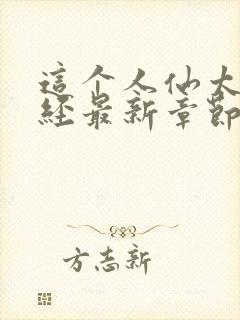 這个人仙太
經最新章節
方志新